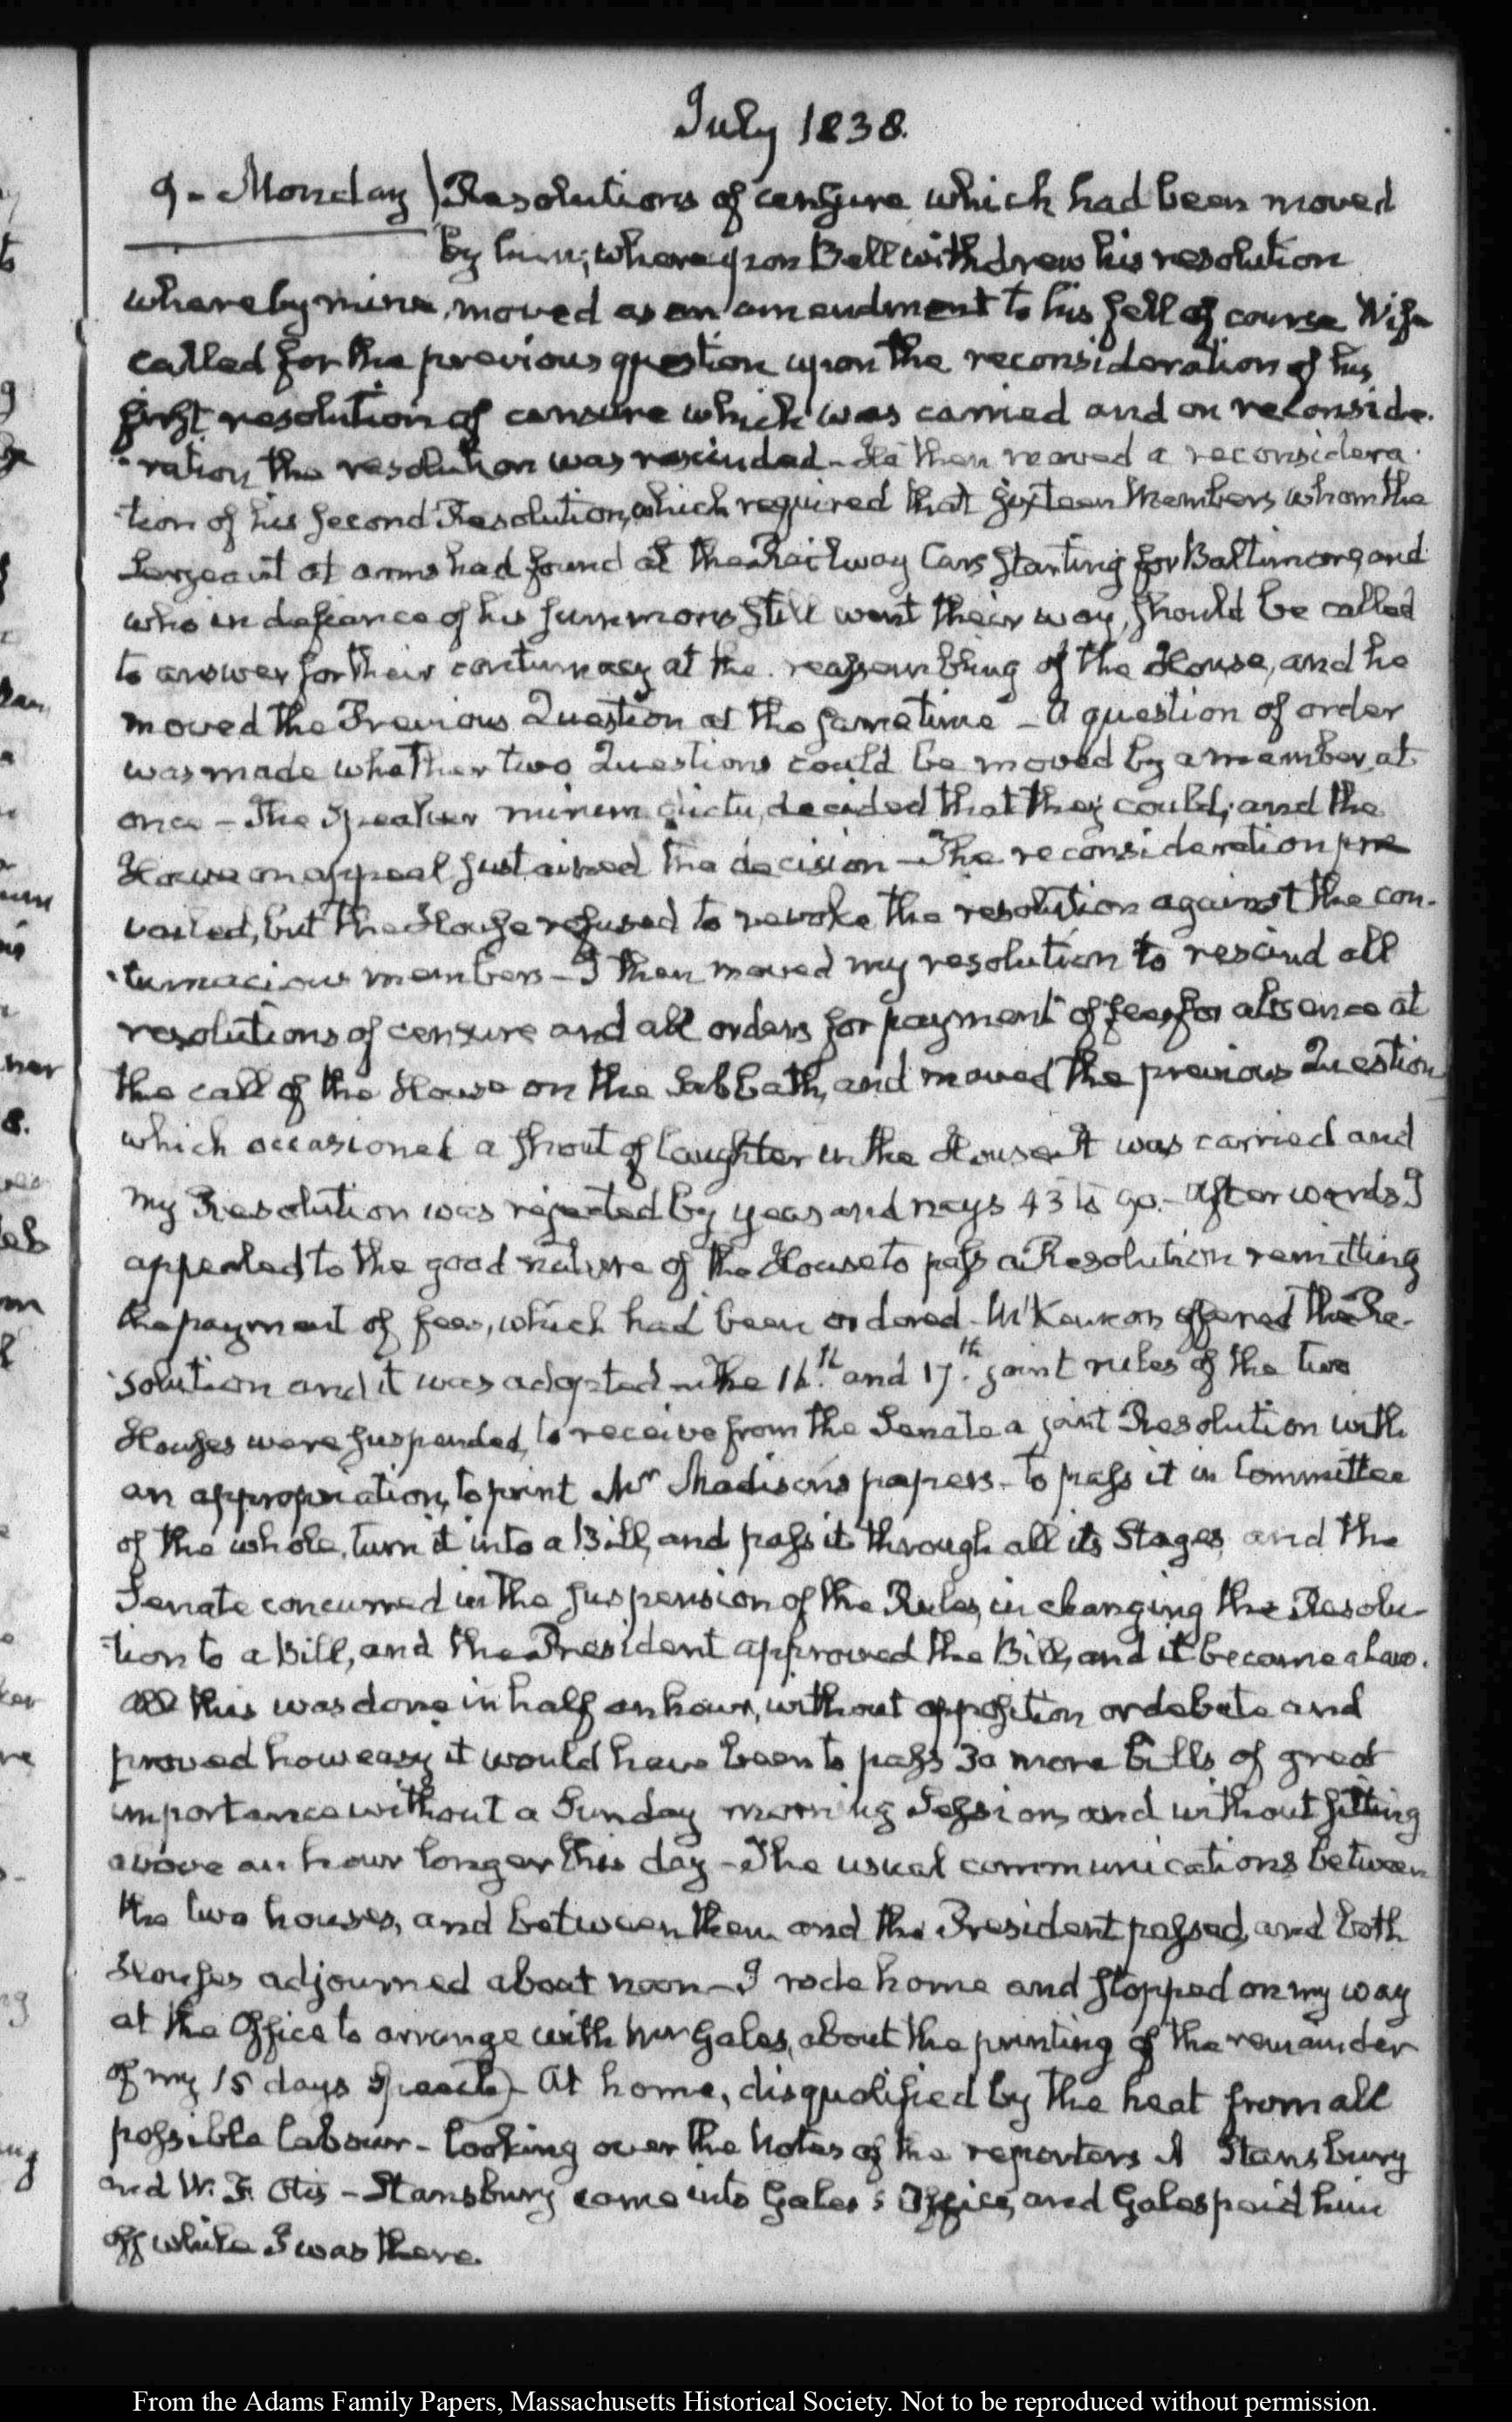 July 1838.
9. Monday) Resolutions of censure which had been moved
by him; whereupon Bell withdrew his resolution
whereby mine, moved as an amendment to his fell of course Wise
called for the previous question upon the reconsideration of his
first resolution of censure which was carried and on reconside-
-ration the resolution was rescinded. He then moved a reconsidera-
-tion of his second Resolution, which required that sixteen Members, whom the
Sergeant at arms had found at the Railway Cars starting for Baltimore, and
who in defiance of his summons still went their way, should be called
to answer for their contumacy at the reassembling of the House, and he
moved the Previous Question at the same time – A question of order
was made whether two Questions could be moved by a member at
once – The Speaker mirum dictu, decided that they could; and the
House on appeal sustained the decision – The reconsideration pre
vailed, but the House refused to revoke the resolution against the con-
-tumacious members – I then moved my resolution to rescind all
resolutions of censure and all orders for payment of fees for absence at
the call of the House on the Sabbath, and moved the previous Question
which occasioned a shout of laughter in the House It was carried and
my Resolution was rejected by yeas and nays 43 to 90. – Afterwards I
appealed to the good nature of the House to pass a Resolution remitting
the payment of fees, which had been ordered – McKennan offered the Re-
-solution and it was adopted – The 16th. and 17th. joint rules of the two
Houses were suspended, to receive from the Senate a joint Resolution with
an appropriation, to print Mr Madison's papers – to pass it in Committee
of the whole, turn it into a Bill, and pass it through all its Stages, and the
Senate concurred in the suspension of the Rules, in changing the Resolu-
-tion to a Bill, and the President approved the Bill, and it became a law.
All this was done in half an hour, without opposition or debate and
proved how easy it would have been to pass 30 more bills of great
importance without a Sunday morning Session, and without sitting
above an hour longer this day – The usual communications between
the two houses, and between them and the President passed, and both
Houses adjourned about noon – I rode home and stopped on my way
at the Office to arrange with Mr Gales, about the printing of the remainder
of my 15 days speech) – At home, disqualified by the heat from all
possible labour – looking over the Notes of the reporters A Stansbury
and W. F. Otis – Stansbury came into Gales's Office, and Gales paid him
off while I was there.
From the Adams Family Papers, Massachusetts Historical Society. Not to be reproduced without permission.